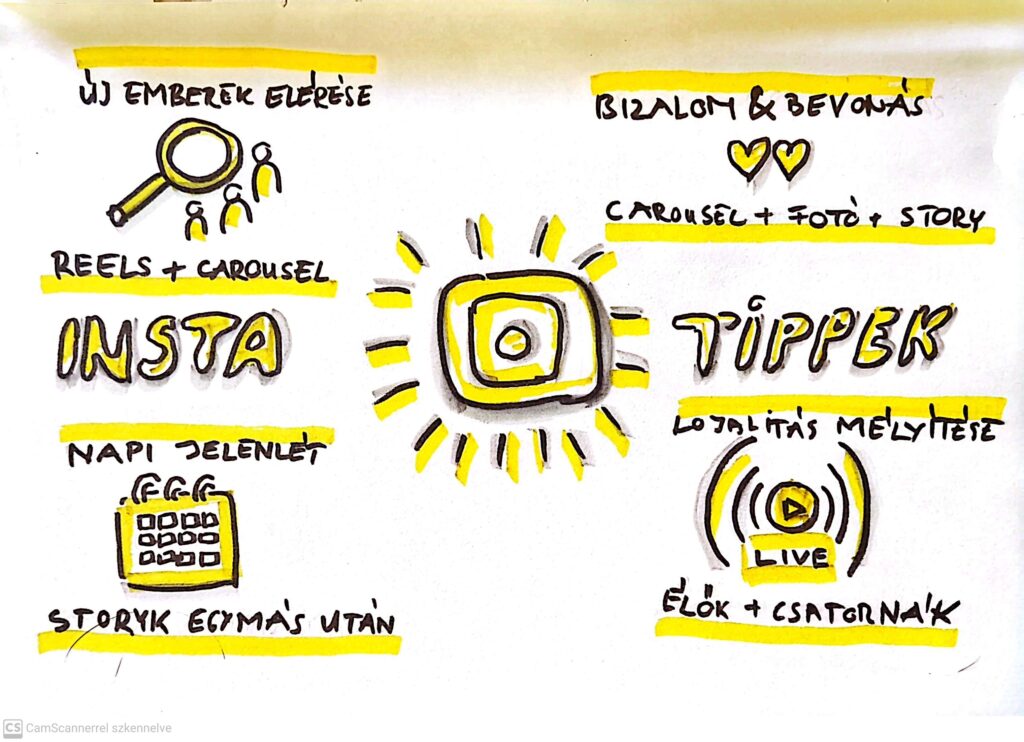 ÚJ EMBEREK ELÉRÉSE
REELS + CAROUSEL
BIZALOM & BEVONÁS
CAROUSEL + FOTÓ + STORY
INSTA TIPPEK
NAPI JELENLÉT
STORYK EGYMÁS UTÁN
LOJALITÁS MÉLYÍTÉSE
LIVE
ÉLŐK + CSATORNÁK
CS CamScannerrel szkennelve